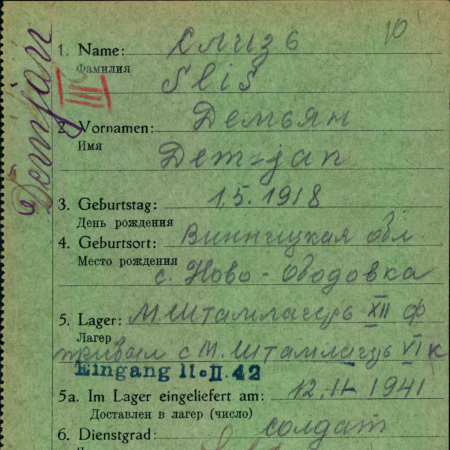 10
Demjan
III
1. Name: Слизь
Фамилия
Slis
2. Vornamen: Демьян
Имя
Dem-jan
3. Geburtstag: 1.5.1918
День рождения
4. Geburtsort: Винницкая обл
Место рождения
с. Ново-Ободовка
5. Lager: М. Шталлагерь XII Ф
Лагерь
прибыл с М. Шталлагерь VI К
Eingang 11.II.42
5a. Im Lager eingeliefert am: 12.II 1941
Доставлен в лагер (число)
6. Dienstgrad: солдат